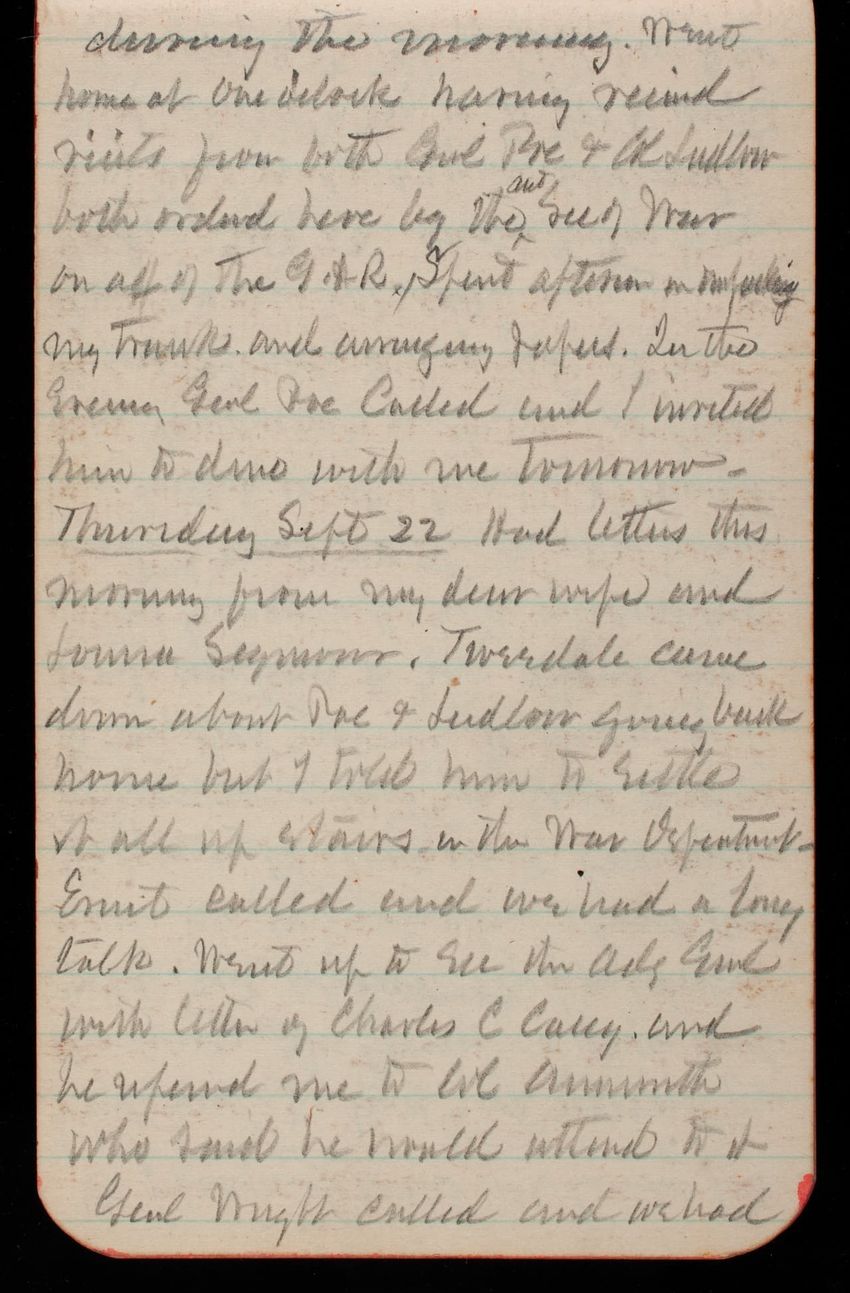 during the morning. Went
home at One oclock having recived
visits from both Genl Poe & Col Ludlow
both orderd here by the Sec of War
and
on a/c of the G.A.R., Spent afternoon in unpacking
my Trunk and arranging papers. In the
Evening Genl Poe Called and I invited
him to dine with me tomorrow -
Thursday Sept 22 Had letters this
morning from my dear wife and
Louisa Seymour. Tweedale came
down about Poe & Ludlow going back
home but I told him to settle
it all up stairs in the War Department -
Ernst called and we had a long
talk. Went up to see the Adj Genl
with letter of Charles C Casey. and
he referred me to Col
who said he would attend to it
Genl Wright called and we had